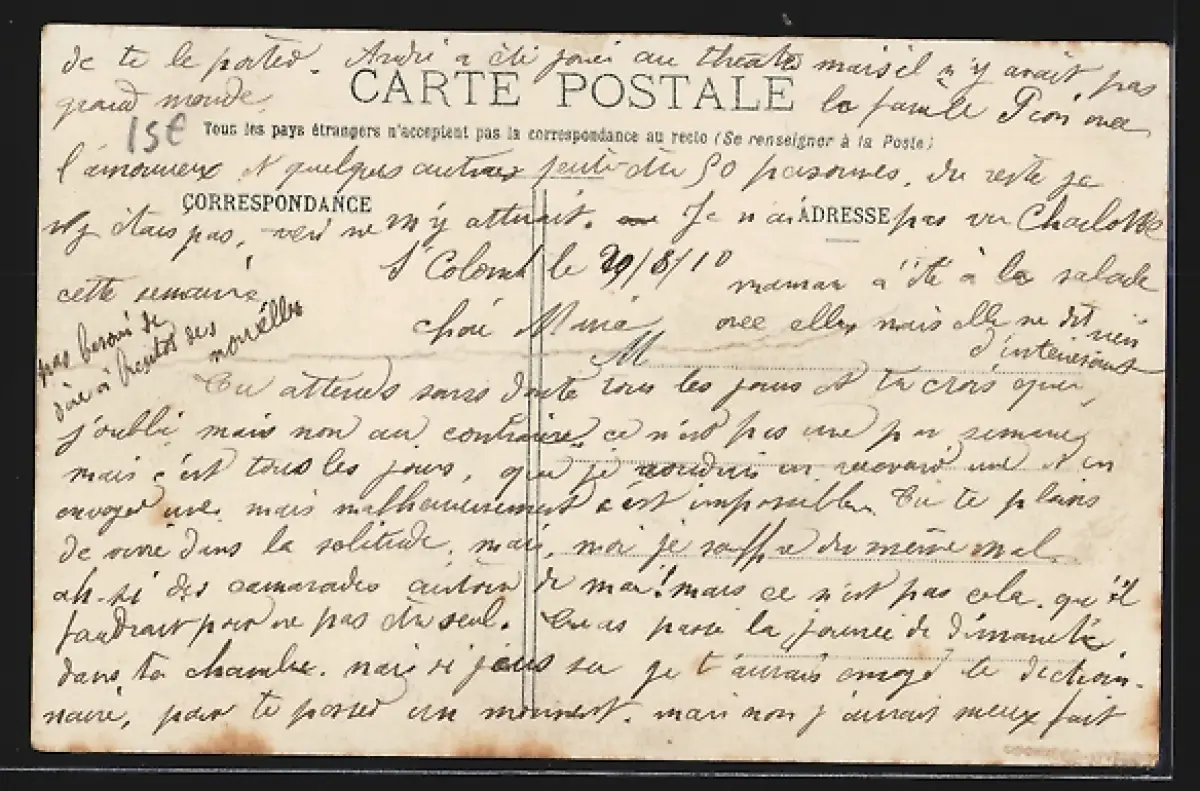 de te le porter. André a été jouer au théâtre mais il n'y avait pas
grand monde
CARTE POSTALE
la famille avec
15€
Tous les pays étrangers n'acceptent pas la correspondance au recto (Se renseigner à la Poste)
l'amoureux et quelques autres 50 personnes, du reste je
CORRESPONDANCE
n'y étais pas, rien ne m'y attirait. Je n'ai pas vu Charlotte
ADRESSE
cette semaine
St Colomb le 29/8/10
maman a été à la salade
chère
avec elles mais elle ne dit rien
d'intéressant
pas besoin de
dire à bientôt des
nouvelles
M
Tu attends sans doute tous les jours et tu crois que
j'oublie mais non au contraire, ce n'est pas une par semaine
mais c'est tous les jours, que je voudrais en recevoir une et en
envoyer une, mais malheureusement c'est impossible. Tu te plains
de vivre dans la solitude, mais, moi je souffre du même mal
ah. si des camarades autour de moi! mais ce n'est pas cela. qu'il
faudrait pour ne pas être seul. Tu as passé la journée de dimanche
dans ta chambre. mais si j'avais su je t'aurais envoyé le diction-
naire, pour te porter un moment. mais non j'aurais mieux fait